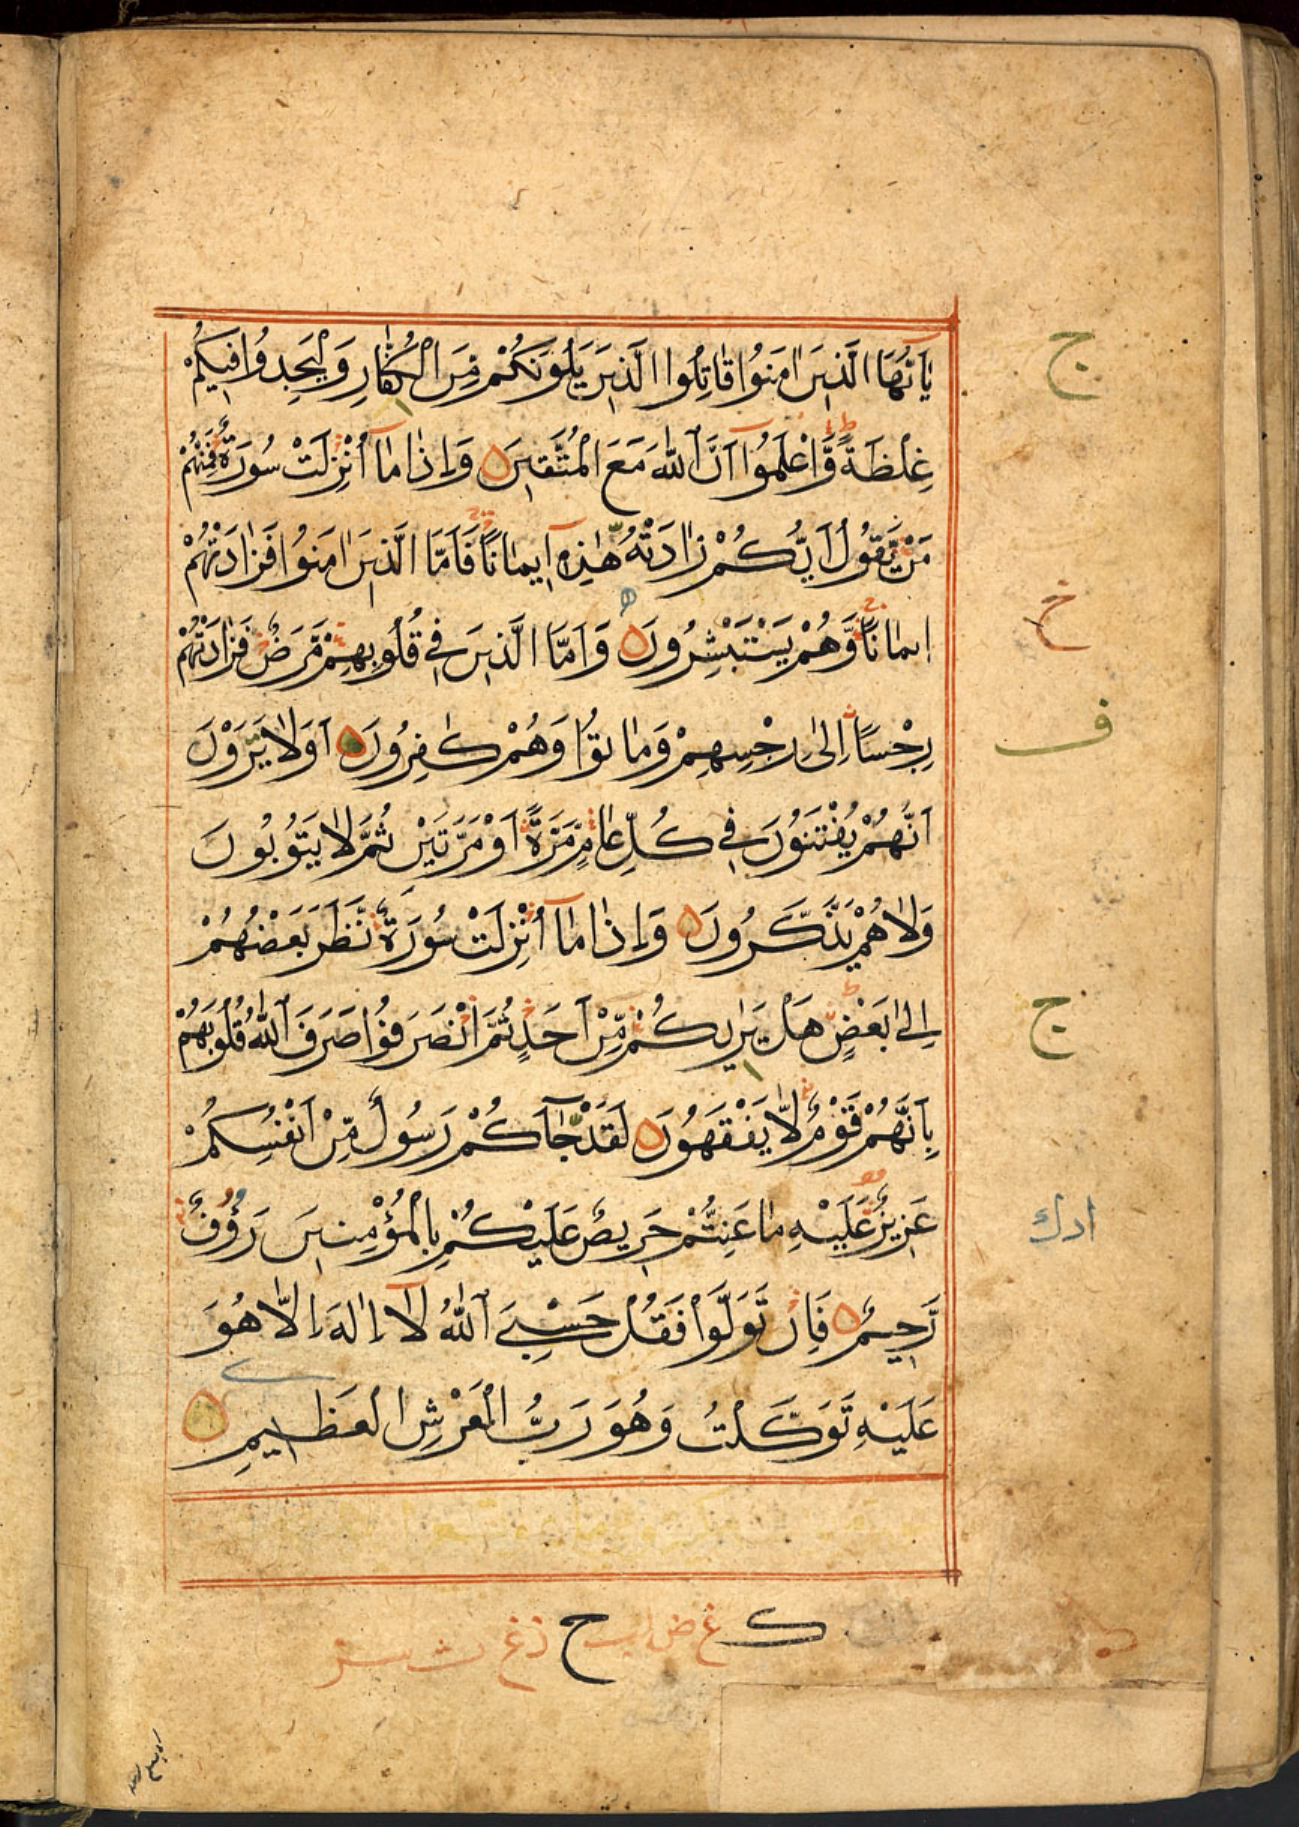 يٰاَيُّهَا الَّذِيْنَ اٰمَنُوْا قَاتِلُوا الَّذِيْنَ يَلُوْنَكُمْ مِّنَ الْكُفَّارِ وَلْيَجِدُوْا فِيْكُمْ
غِلْظَةً وَّاعْلَمُوْٓا اَنَّ اللّٰهَ مَعَ الْمُتَّقِيْنَ وَاِذَا مَآ اُنْزِلَتْ سُوْرَةٌ فَمِنْهُمْ
مَّنْ يَّقُوْلُ اَيُّكُمْ زَادَتْهُ هٰذِهٖٓ اِيْمَانًا فَاَمَّا الَّذِيْنَ اٰمَنُوْا فَزَادَتْهُمْ
اِيْمَانًا وَّهُمْ يَسْتَبْشِرُوْنَ وَاَمَّا الَّذِيْنَ فِيْ قُلُوْبِهِمْ مَّرَضٌ فَزَادَتْهُمْ
رِجْسًا اِلٰى رِجْسِهِمْ وَمَاتُوْا وَهُمْ كٰفِرُوْنَ اَوَلَا يَرَوْنَ
اَنَّهُمْ يُفْتَنُوْنَ فِيْ كُلِّ عَامٍ مَّرَّةً اَوْ مَرَّتَيْنِ ثُمَّ لَا يَتُوْبُوْنَ
وَلَا هُمْ يَذَّكَّرُوْنَ وَاِذَا مَآ اُنْزِلَتْ سُوْرَةٌ نَّظَرَ بَعْضُهُمْ
اِلٰى بَعْضٍ هَلْ يَرٰىكُمْ مِّنْ اَحَدٍ ثُمَّ انْصَرَفُوْا صَرَفَ اللّٰهُ قُلُوْبَهُمْ
بِاَنَّهُمْ قَوْمٌ لَّا يَفْقَهُوْنَ لَقَدْ جَآءَكُمْ رَسُوْلٌ مِّنْ اَنْفُسِكُمْ
عَزِيْزٌ عَلَيْهِ مَا عَنِتُّمْ حَرِيْصٌ عَلَيْكُمْ بِالْمُؤْمِنِيْنَ رَءُوْفٌ
رَّحِيْمٌ فَاِنْ تَوَلَّوْا فَقُلْ حَسْبِيَ اللّٰهُ لَآ اِلٰهَ اِلَّا هُوَ
عَلَيْهِ تَوَكَّلْتُ وَهُوَ رَبُّ الْعَرْشِ الْعَظِيْمِ
ج
خ
ف
ج